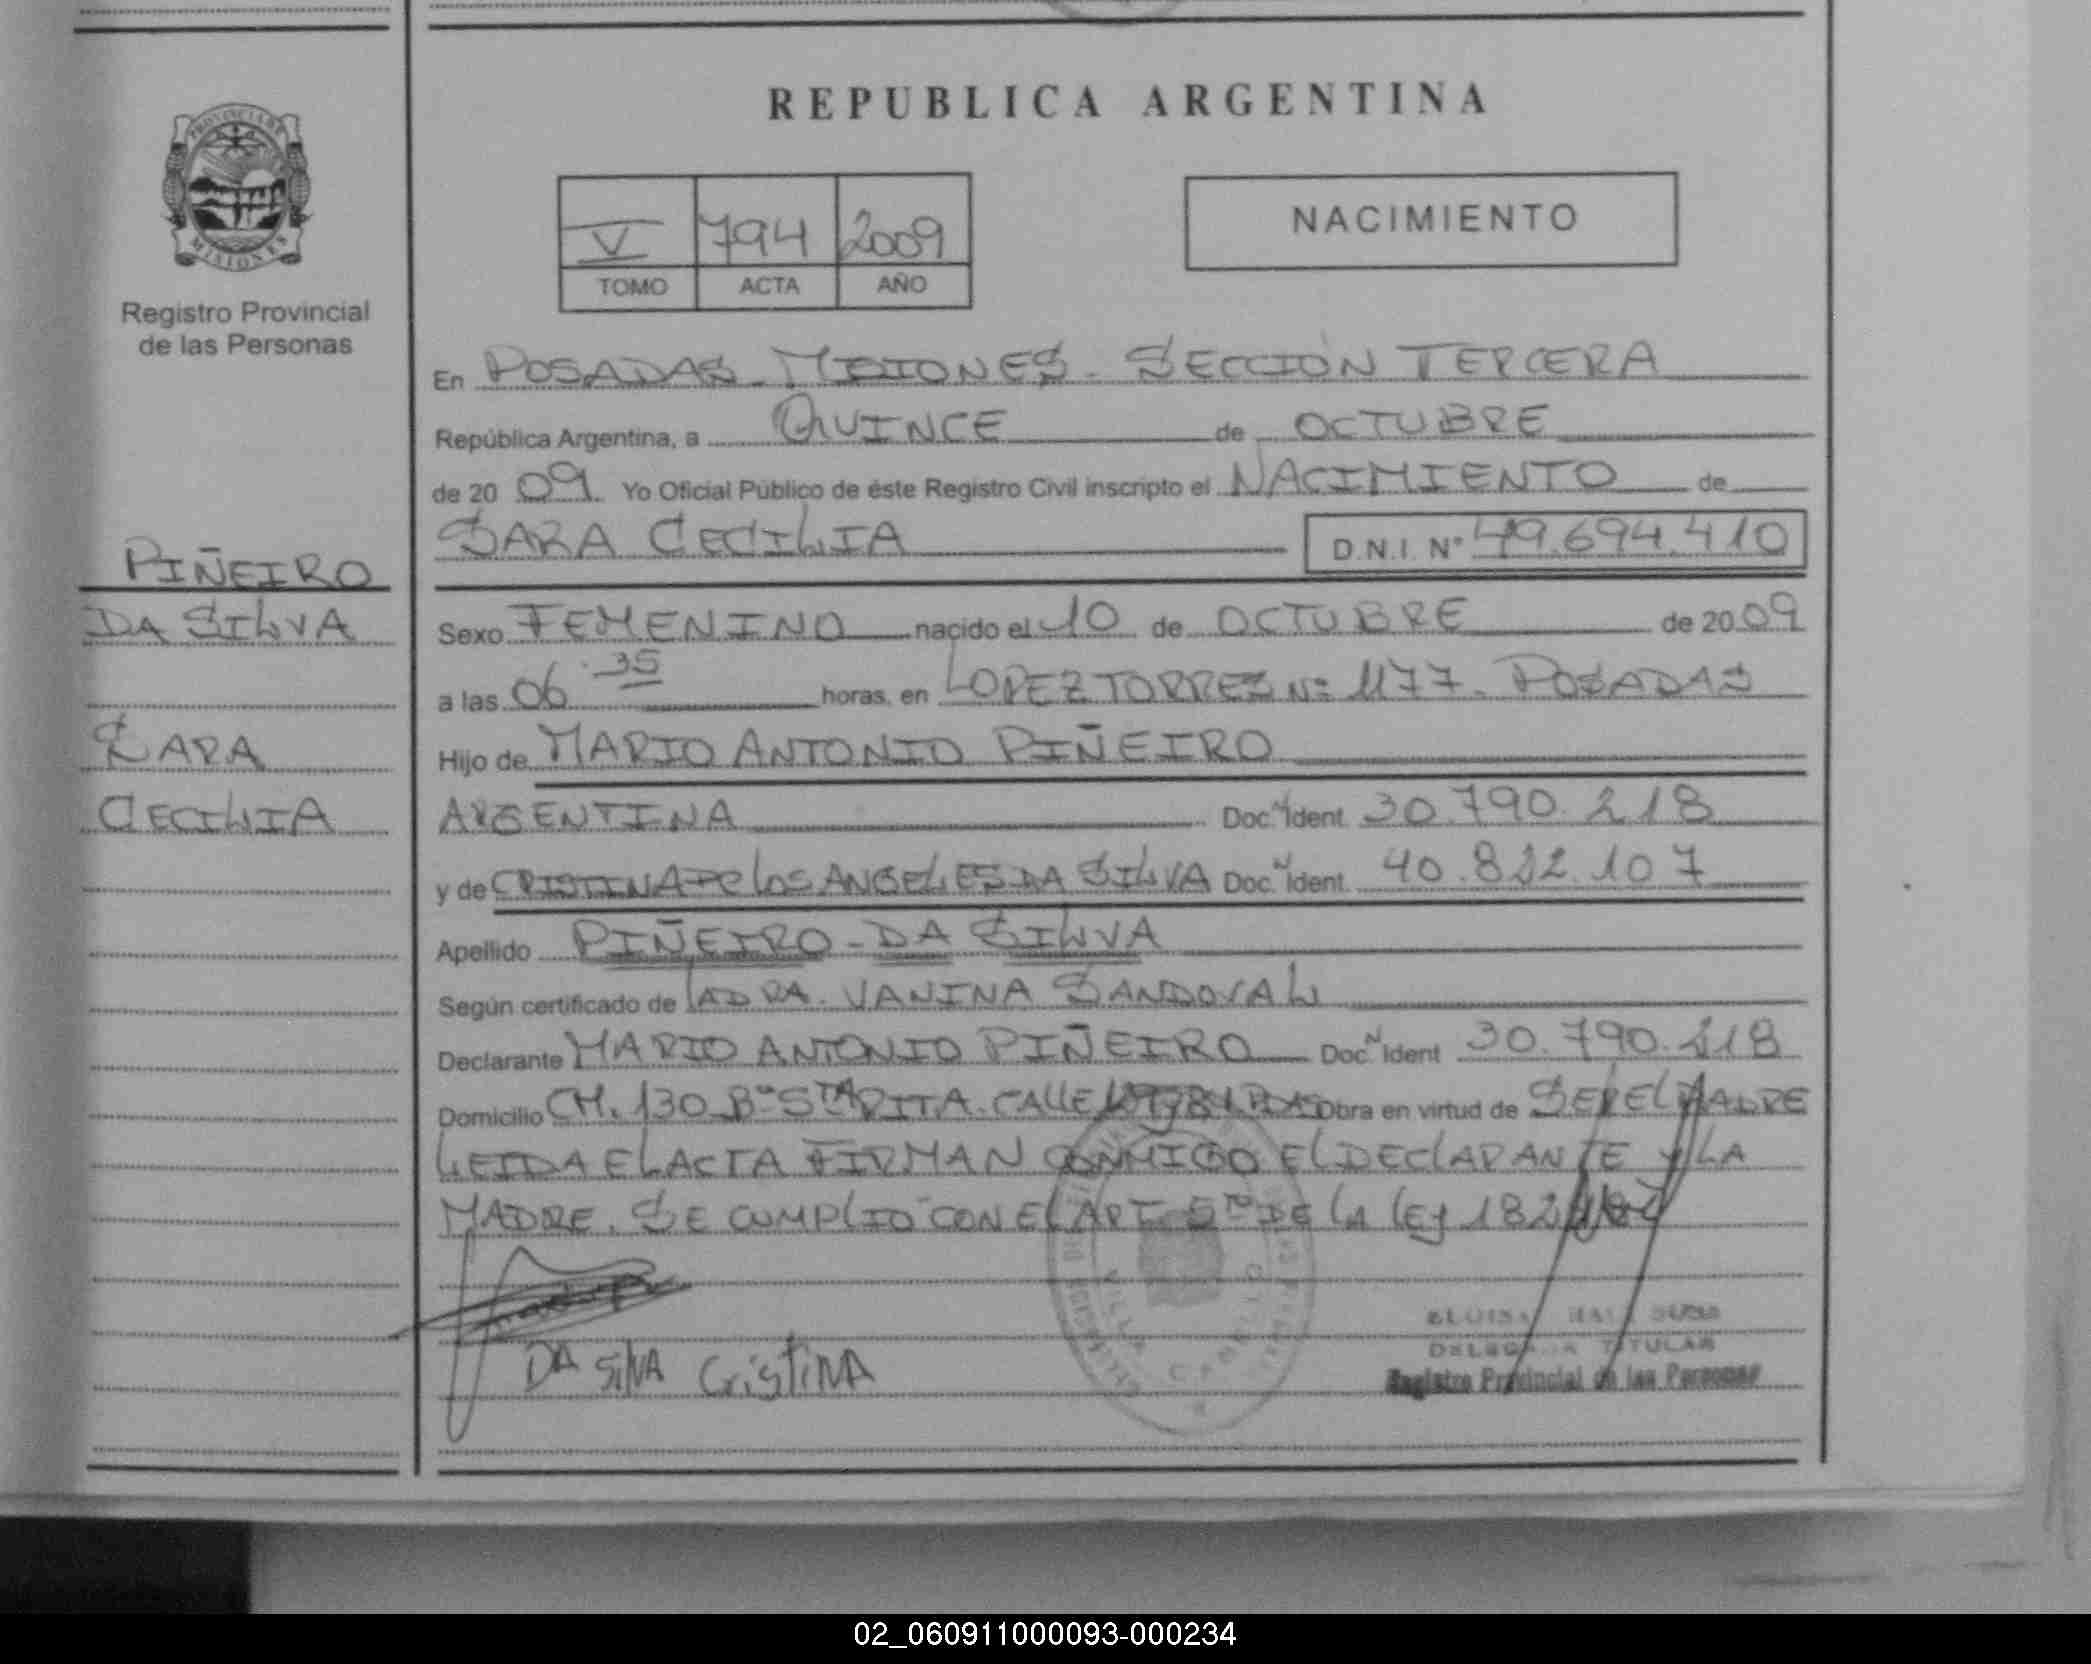 REPUBLICA ARGENTINA
PROVINCIA DE
MISIONES
Registro Provincial
de las Personas
V 794 2009
TOMO ACTA AÑO
NACIMIENTO
En POSADAS - MISIONES - SECCIÓN TERCERA
República Argentina, a QUINCE de OCTUBRE
de 20 09. Yo Oficial Público de éste Registro Civil inscripto el NACIMIENTO de
SARA CECILIA D.N.I. Nº 49.694.410
PIÑEIRO
DA SILVA
SARA
CECILIA
Sexo FEMENINO nacido el 10 de OCTUBRE de 20 09
a las 06.35 horas, en LOPEZ TORRES Nº 1177. POSADAS
Hijo de MARIO ANTONIO PIÑEIRO
ARGENTINA Doc. N Ident. 30.790.218
y de CRISTINA DE LOS ANGELES DA SILVA Doc. N Ident. 40.822.107
Apellido PIÑEIRO - DA SILVA
Según certificado de LA DRA. VANINA SANDOVAL
Declarante MARIO ANTONIO PIÑEIRO Doc. N Ident 30.790.218
Domicilio CH. 130 Bº STA RITA. CALLE Obra en virtud de SER EL PADRE
LEIDA EL ACTA FIRMAN CONMIGO EL DECLARANTE Y LA
MADRE. SE CUMPLIO CON EL ART. 5TO DE LA LEY
DA SilVA CrisTiNA
VILLA CABELLO
TITULAR
Registro Provincial de las Personas
02_060911000093-000234